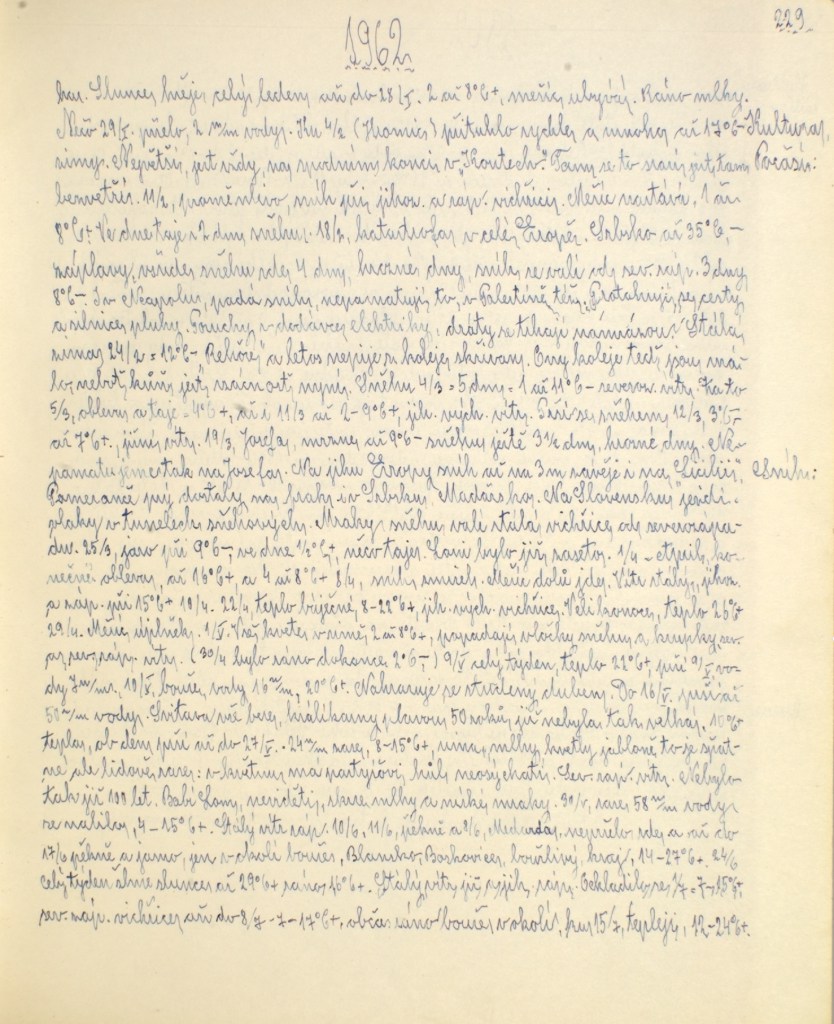 229.
1962
ha. Slunce hřeje celý leden až do 28/I. 2 až 8°C+, měsíc ubývá. Ráno mlhy.
Než 29/I. pršelo, 2 m/m vody. Ku 4/2 (Hromic) přituhlo rychle a mnoho až 17°C- Kultura,
zimy. Největší, jet vždy, na spodním konci v „Koutech". Tam se to jest tam Počasí:
bezvětří. 11/2, proměnlivo, sníh při jihov. a záp. vichřici. Měsíc nastává. 1 až
8°C+. Ve dne taje 2 dmy sněhu. 18/2, katastrofa v celé Evropě. Srbsko až 35°C,-
záplavy, všude sněhu zde 4 dmy, hrozné dny, sníh se valí od sev. záp. 3 dmy
8°C-. I v Neapolu, padá sníh, nepamatují to, v Palestině též. Protahují se cesty
a silnice pluhy. Poruchy v dodávce elektriky, dráty se trhají námrazou. Stálá
zima 24/2 = 12°C- Řehoře, a letos nepije z koleje skřivan. Ony koleje teď jsou má-
lo, nebrž kůň jest vzácností nyní. Sněhu 4/3 = 5 dmy = 1 až 11°C- severov. vítr. Za to
5/3, obleva a taje 4°C+, až i 11/3 až 2-9°C+, jih. vých. vítr. Práší se sněhem 12/3, 3°C-
až 7°C+, jižní vítr. 19/3, Josefa, mrzne až 9°C- sněhu ještě 3½ dmy, hrozné dny. Ne-
pamatujeme tak na Josefa. Na jihu Evropy sníh až na 3m naváje i na „Sicilii" Sníh:
Pomeranče prý dostaly na frak i v Srbsku, Maďarsko. Na Slovensku jezdí
vlaky v tunelech sněhových. Mraky sněhu valí stálá vichřice od severozápa-
du. 25/3, jaro při 9°C-, ve dne 1/2°C+, něco taje. Loni bylo již zaseto. 1/4 - ko-
nečně obleva, až 16°C+, a 4 až 8°C+ 8/4, sníh zmizel. Měsíc dolů jde. Vítr stálý, jihov.
a záp. při 15°C+ 10/4. 22/4, teplo báječné, 8-22°C+, jih. vých. vichřice. Velikonoce, teplo 26°C+
29/4. Měsíc úplněk. 1/V. Vše kvete v zimě, 2 až 8°C+, popadají vločky sněhu a krupky, sev-
er, sev. záp. vítr. (30/4 bylo ráno dokonce 2°C-,) 9/V celý týden, teplo 22°C+, prší 9/V, vo-
dy 7 m/m. 10/V, bouře, vody 16 m/m, 20°C+. Nahrazuje se ztracený duben. Do 16/V. prší až
50 m/m vody. Svitava vše bere, králíkarny plavou, 50 roků, již nebyla tak velká, 10°C+
tepla, ob den prší až do 27/V. - 24 m/m zase, 8-15°C+, zima, mlhy, kvetly jabloně to je špat-
né, ale lidově zase: v květnu má partyjóvi, hůl neosýchati. Sev. záp. vítr. Nebylo
tak již 100 let. Babí Lomy, neviděti, skrze mlhy a nízké mraky. 30/V, zase, 58 m/m vody
se nalilo, 4-15°C+. Stálý vítr záp. 10/6, 11/6, pěkně a 8/6, Medarda, nepršelo zde, a až do
17/6 pěkně a jasno, jen v okolí bouře, Blansko, Boskovice, bouřlivý kraj, 14-27°C+. 24/6
celý týden slunce až 29°C+ ráno 16°C+. Stálý vítr již z jih. záp. Ochladilo se 1/7 = 7-15°C+.
sev. záp. vichřice až do 8/7 - 7-17°C+. občas ráno bouře v okolí, ku 15/7, teplejší, 12-24°C+.